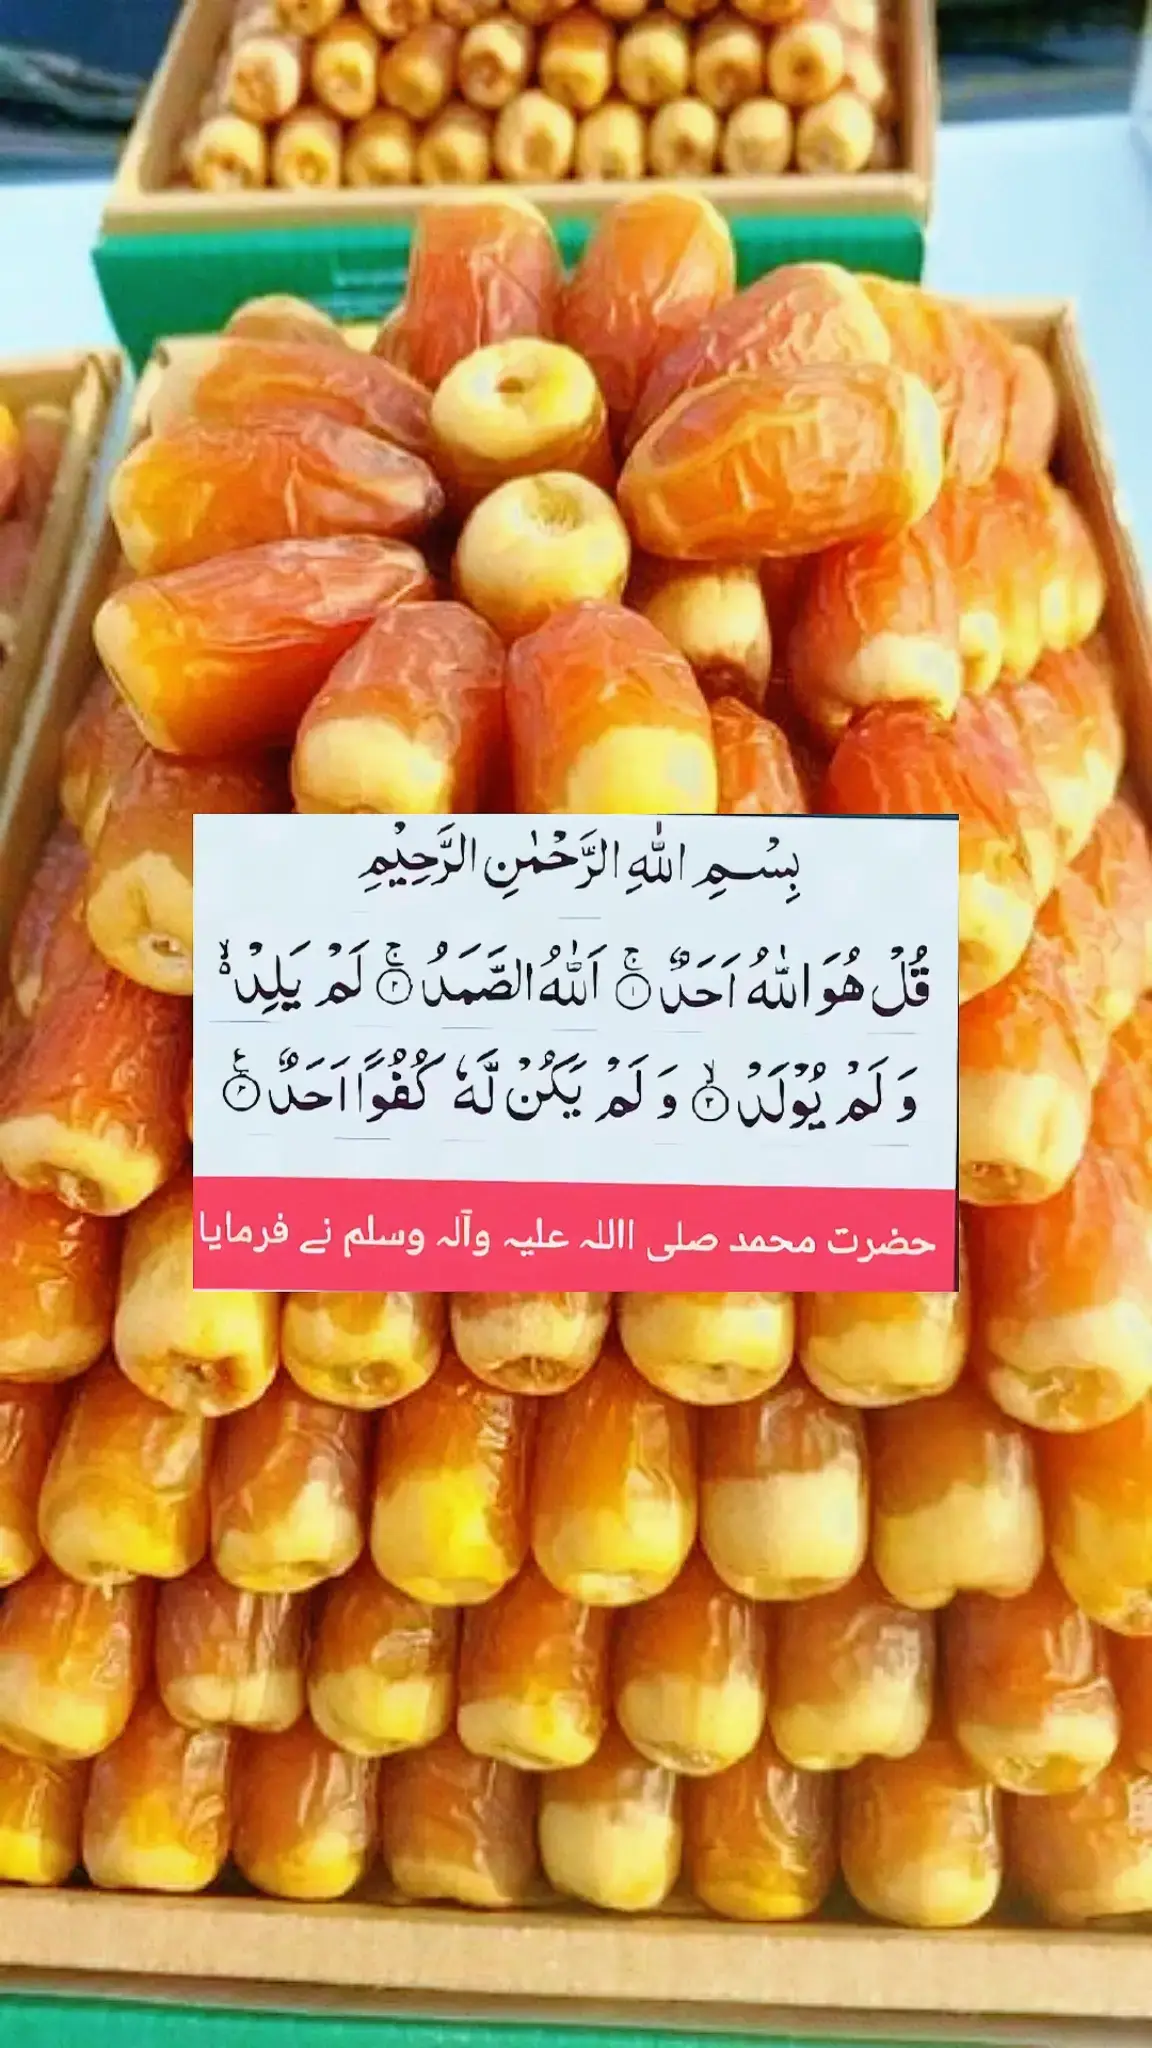 بِسْمِ اللّٰهِ الرَّحْمٰنِ الرَّحِيْمِ
قُلْ هُوَ اللّٰهُ اَحَدٌ ۚ﴿۱﴾ اَللّٰهُ الصَّمَدُ ۚ﴿۲﴾ لَمْ يَلِدْ ۙ۬
وَ لَمْ يُوْلَدْ ۙ﴿۳﴾ وَ لَمْ يَكُنْ لَّهٗ كُفُوًا اَحَدٌ ﴿۴﴾
حضرت محمد صلی االلہ علیہ وآلہ وسلم نے فرمایا